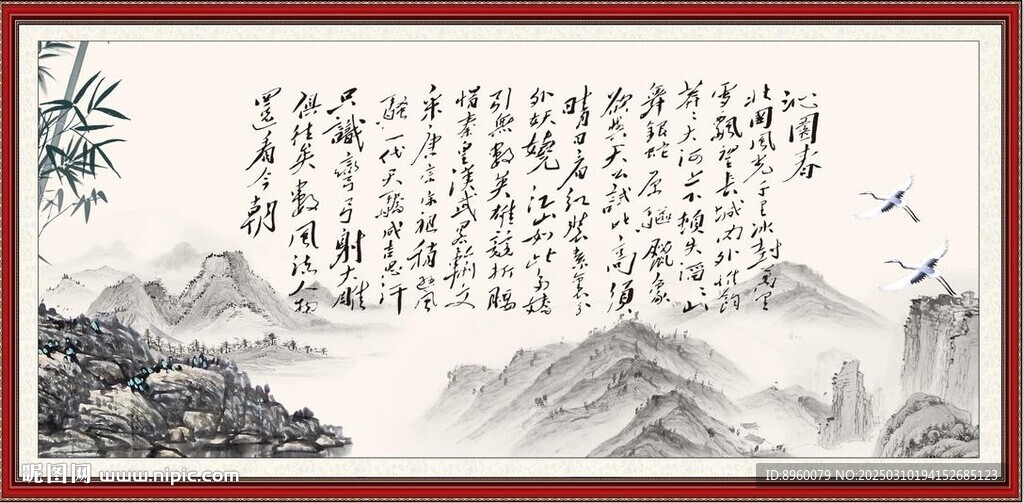 沁園春
北國風光千里冰封萬里
雪飄望長城內外惟餘
莽々大河上下頓失滔々山
舞銀蛇原馳蠟象
欲與天公試比高須
晴日看紅裝素裹分
外妖嬈江山如此多嬌
引無數英雄競折腰
惜秦皇漢武略輸文
采唐宗宋祖稍遜風
騷一代天驕成吉思汗
只識彎弓射大雕
俱往矣數風流人物
還看今朝
昵图网 www.nipic.com
ID:8960079 NO:20250310194152685123